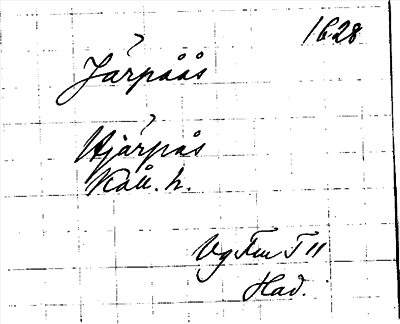 1628
Järpåås
Hjärpås
Kåll. h.
Vg Fm T 11
Had.